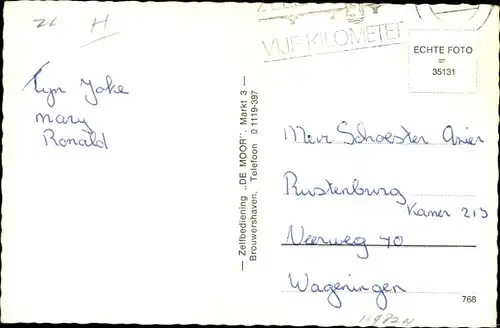 ZL H
VIJF KILOMETER
ECHTE FOTO
=
35131
Joke
Mary
Ronald
— Zelfbediening „DE MOOR", Markt 3 —
Brouwershaven, Telefoon 0 1119-397
Schoester
Rustenburg
Kamer 213
Neerweg 40
Wageningen
768